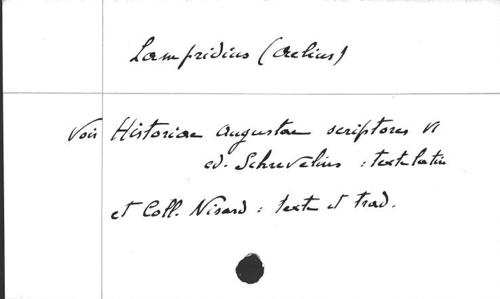 Lampridius (Aelius)
Voir Historiae Augustae scriptores VI
ed. Schrevelius : texte latin
et Coll. Nisard : texte et trad.